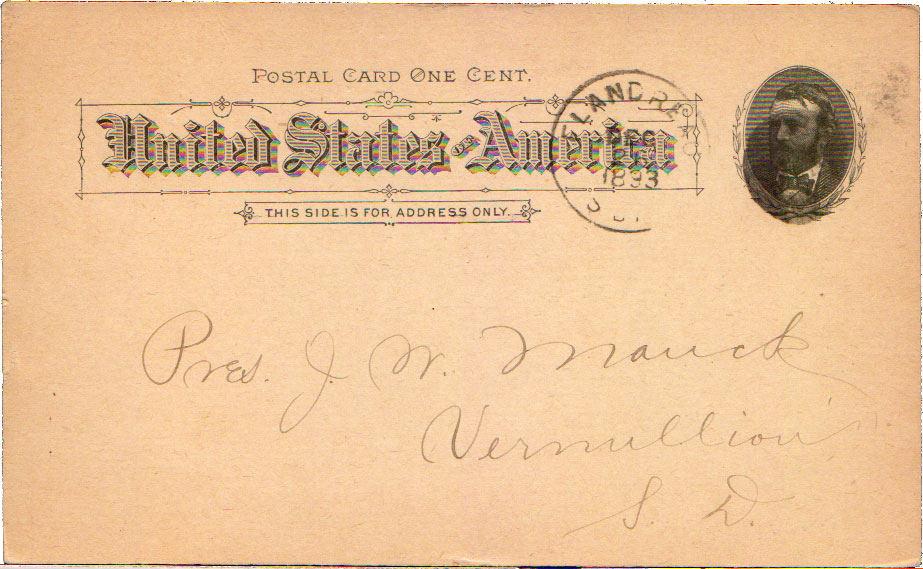 POSTAL CARD ONE CENT.
United States OF America
THIS SIDE IS FOR ADDRESS ONLY.
FLANDREAU
DEC
1893
Pres. J. W. Mauck
Vermillion
S. D.